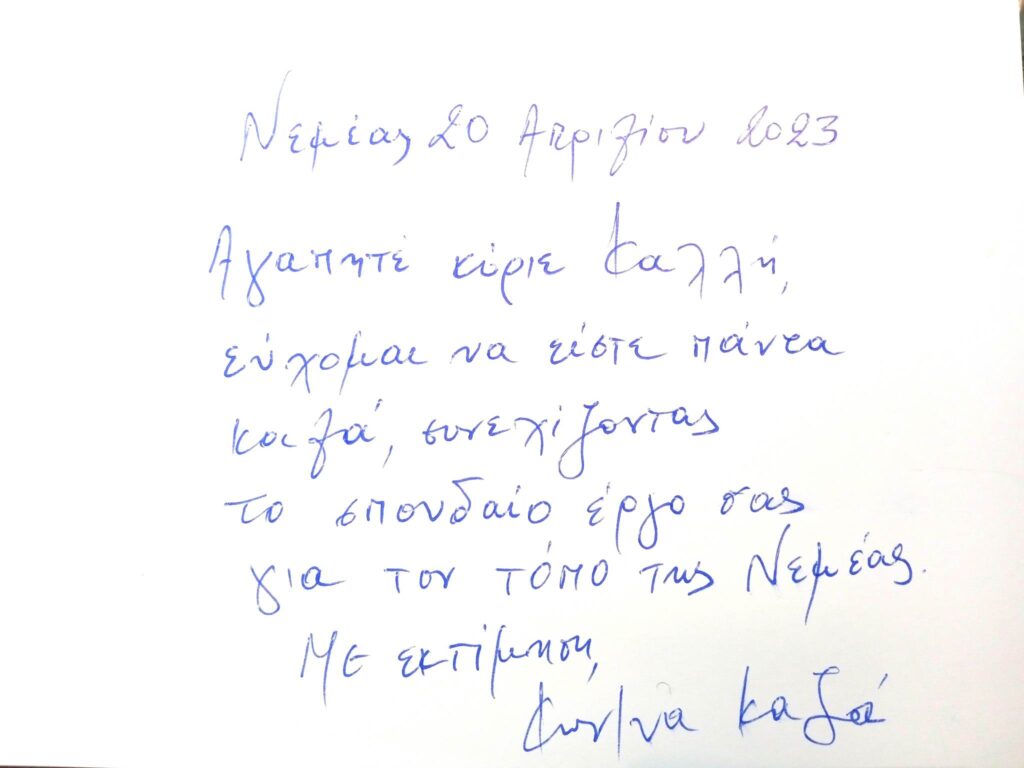 Νεμέας 20 Απριλίου 2023
Αγαπητέ κύριε Καλλή,
εύχομαι να είστε πάντα
καλά, συνεχίζοντας
το σπουδαίο έργο σας
για τον τόπο της Νεμέας.
Με εκτίμηση,
Κων/να Καζά